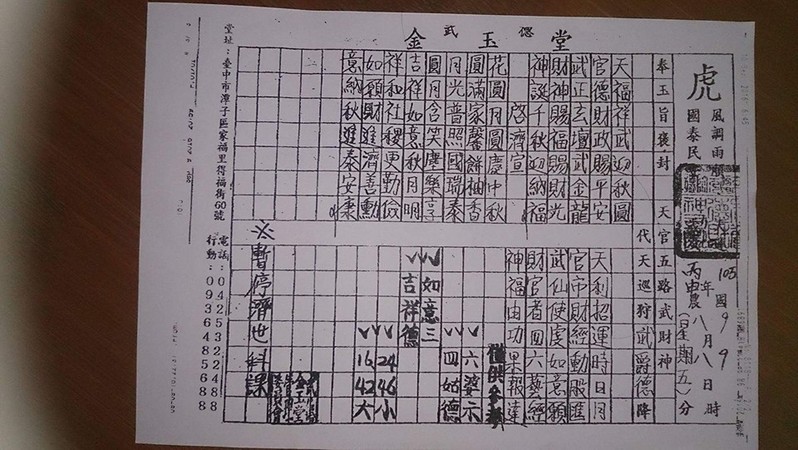 金武玉偲堂
虎
風調雨順
國泰民
105年國9 9
丙申農八月八日時
(星期五)分
奉玉旨褒封 天官五路武財神
代天巡狩武爵德降
天福祥武迎秋圓
官德財政賜平安
武正玄壇武金龍
財神賜福賜財光
神誕千秋迎納福
啓濟宣
花圓月圓慶中秋
圓滿家馨餅柚香
月光普照國瑞泰
圓月含笑塵樂享
吉祥如意秋月明
祥和社稷更勤儉
如願財進濟善勳
意納秋進泰安康
天利招運時日月
官市財經動股匯
武仙使虔如意願
財官者回六藝經
神福由功果報達
僅供參考
六婆示
四姑德
如意三
吉祥德
24 46 小
16 42 大
※暫停濟世科課
堂址：臺中市潭子區家福里得福街60號
電話：0425322488
行動：0936485688